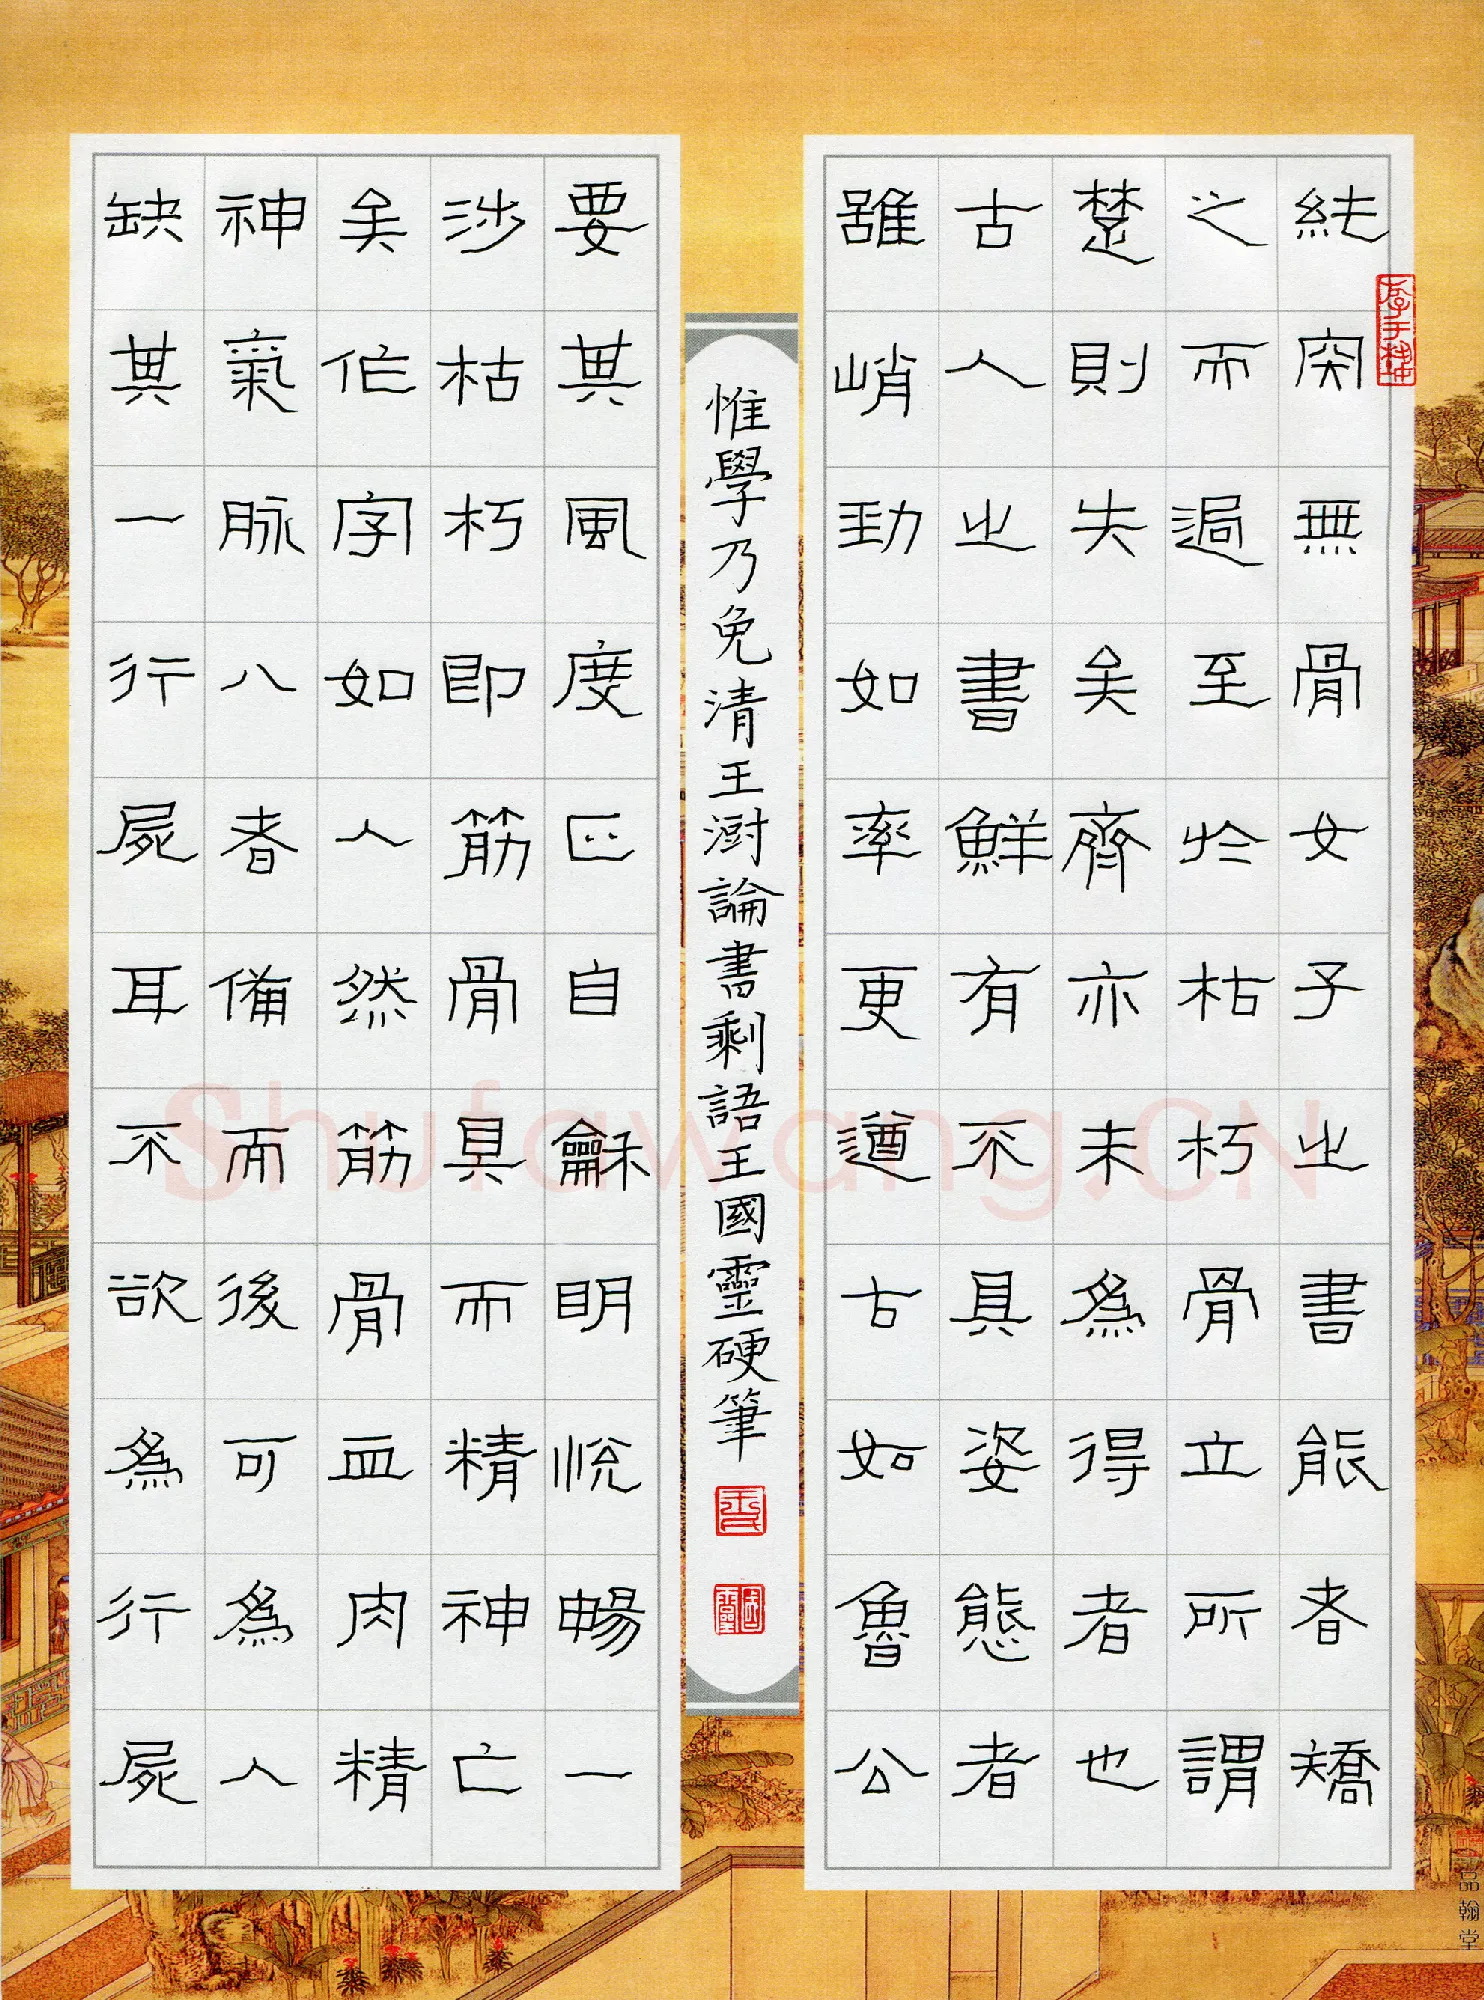 純突無骨女子之書能者矯
之而過至於枯朽骨立所謂
楚則失矣齊亦未為得者也
古人之書鮮有不具姿態者
雖峭勁如率更遒古如魯公
要其風度正自龢明悅暢一
涉枯朽即筋骨具而精神亡
矣作字如人然筋骨血肉精
神氣脈八者備而後可為人
缺其一行屍耳不欲為行屍
惟學乃免清王澍論書剩語王國靈硬筆
國靈
Shufawang.CN
品翰堂